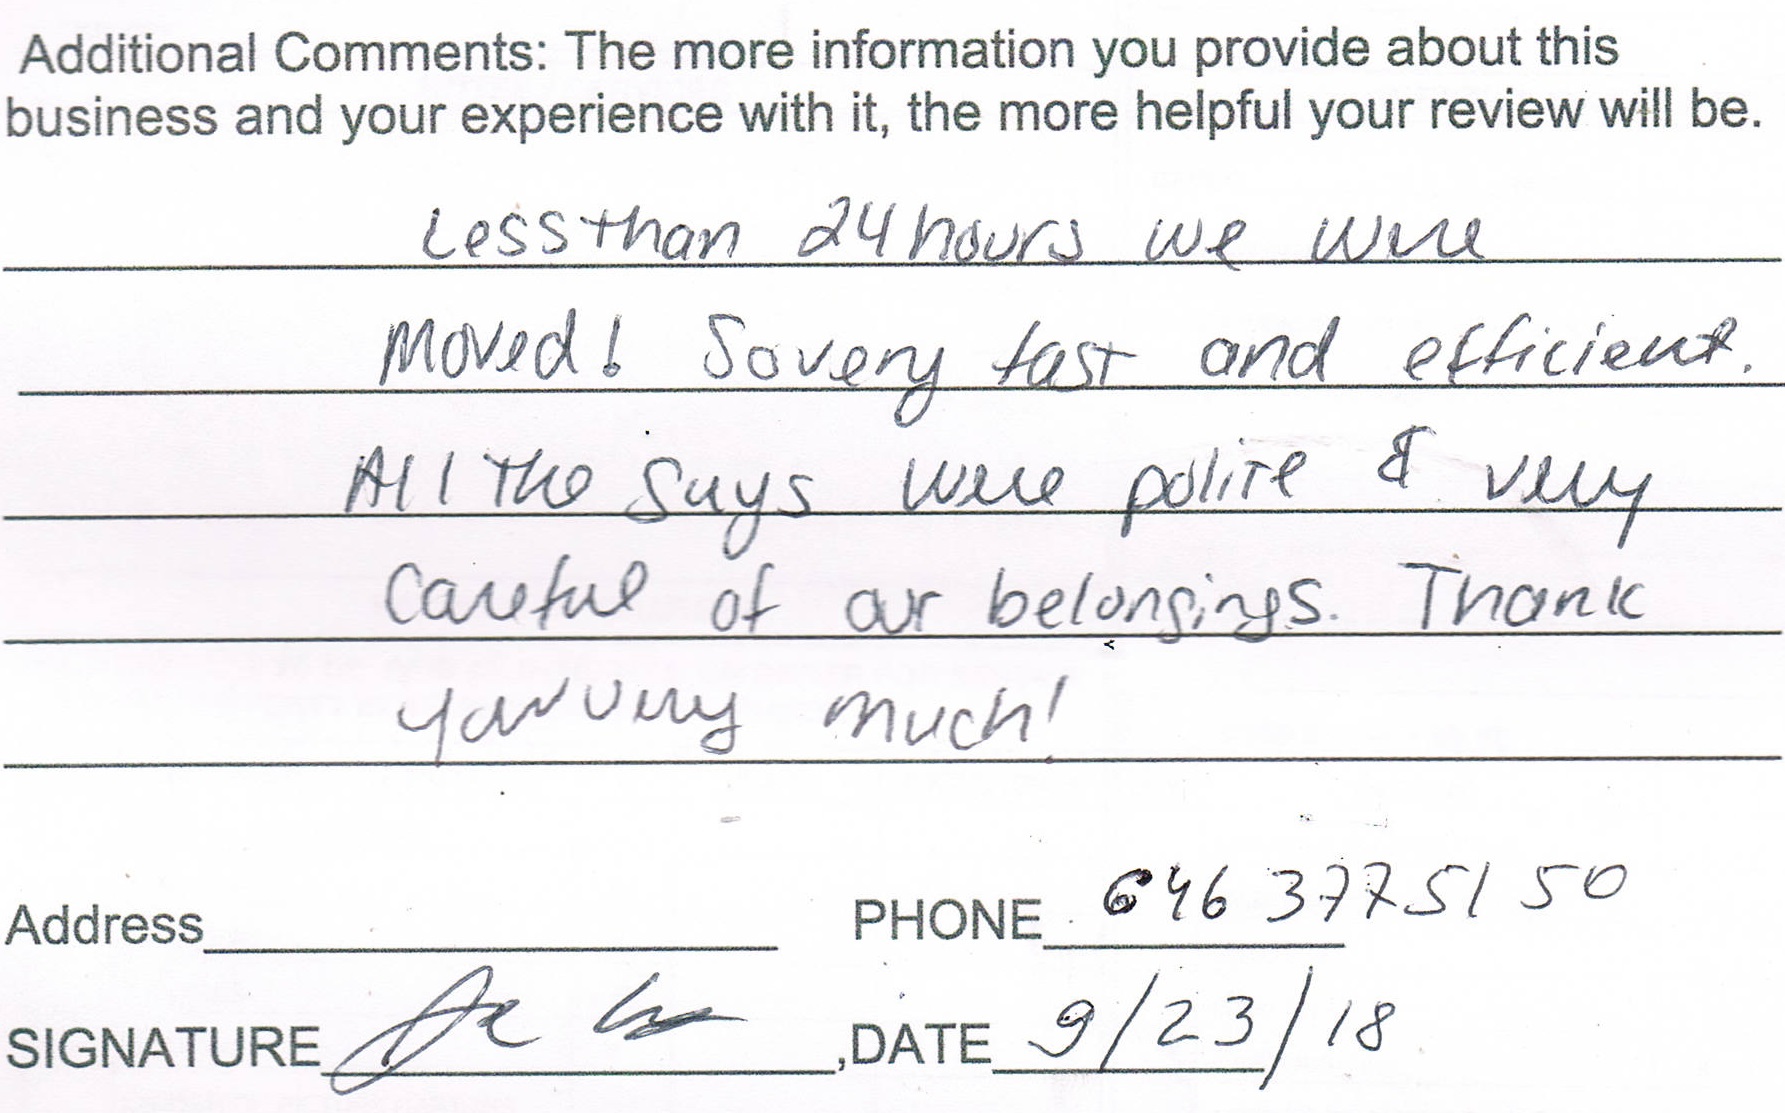 Additional Comments: The more information you provide about this
business and your experience with it, the more helpful your review will be.
Less than 24 hours we were
Moved! So very fast and efficient.
All the guys were polite & very
Careful of our belongings. Thank
you very much!
Address PHONE 646 3775150
SIGNATURE ,DATE 9/23/18